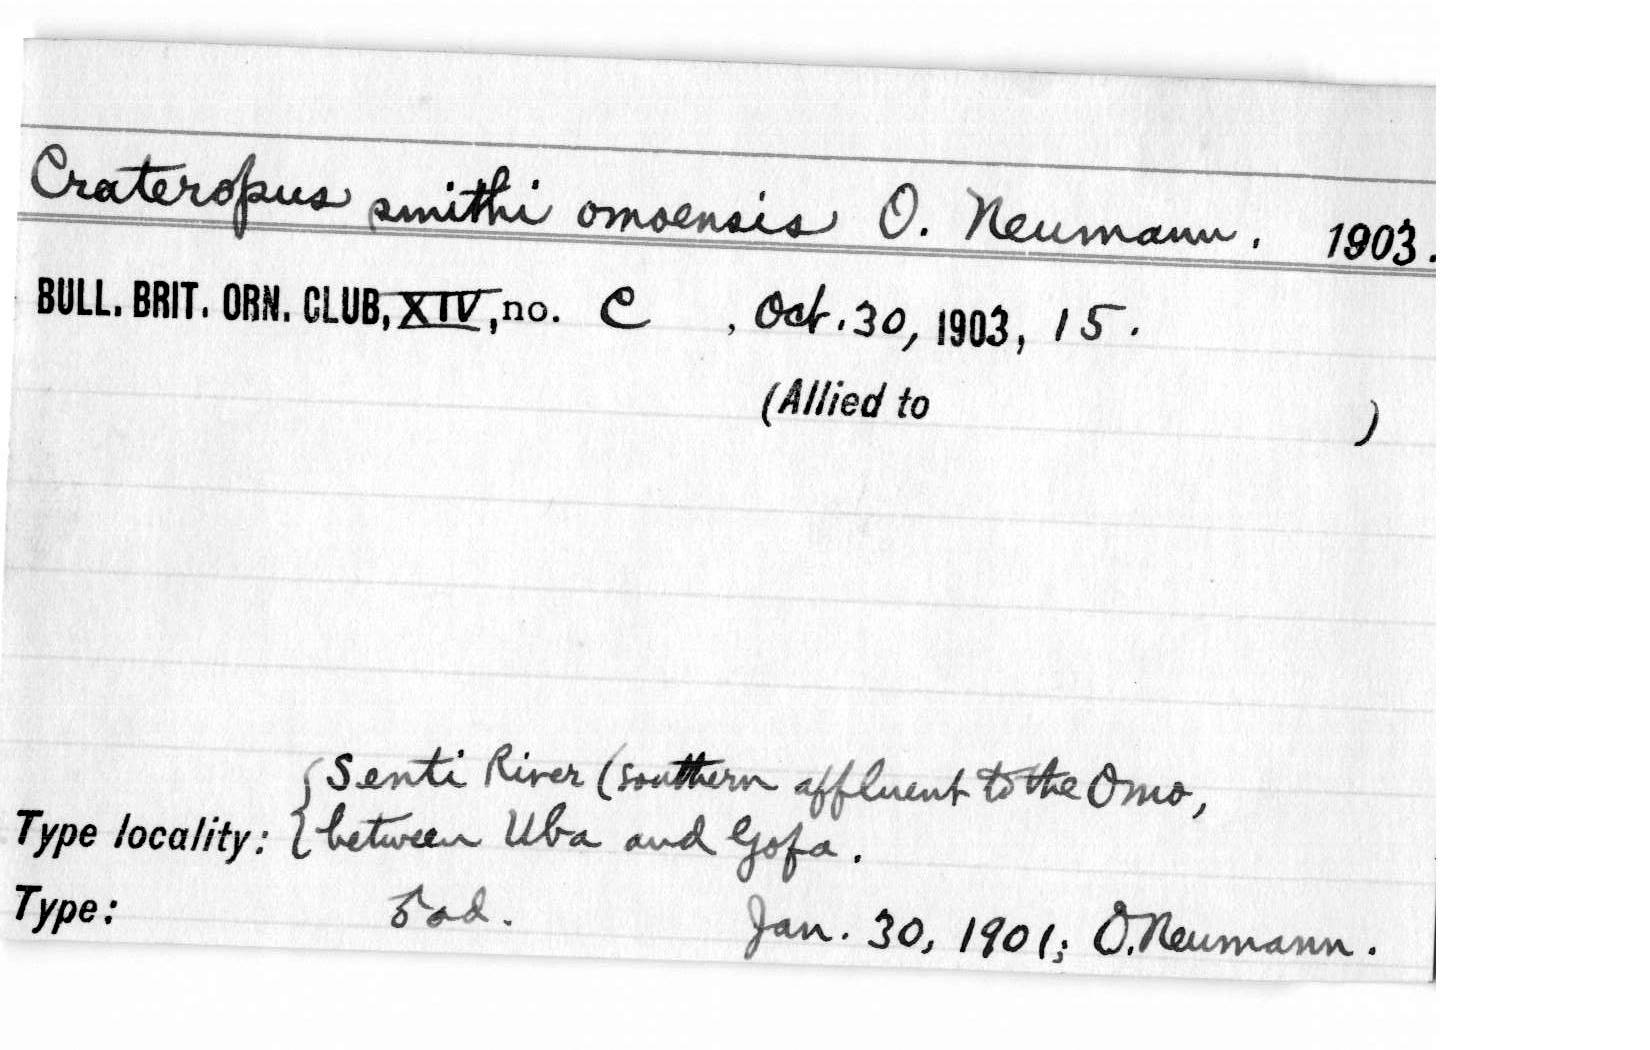 Crateropus smithi omoensis O. Neumann. 1903.
BULL. BRIT. ORN. CLUB, XIV, no. C , Oct. 30, 1903, 15.
(Allied to )
Senti River (southern affluent to the Omo,
Type locality: between Uba and Gofa.
Type: ad. Jan. 30, 1901; O. Neumann.